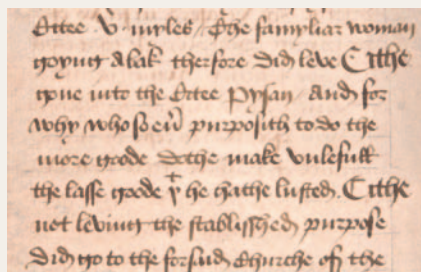 Citee v myles / The famyliar woman
goyng abak therfore did leve C ithe
gone into the Citee Pysan / And for
why who so eu̅ purposith to do the
more goode dothe make vnlefull
the lasse goode þt he hathe lusted. C ithe
not leving the stablisshed purpose
did go to the forsaid Churche of the